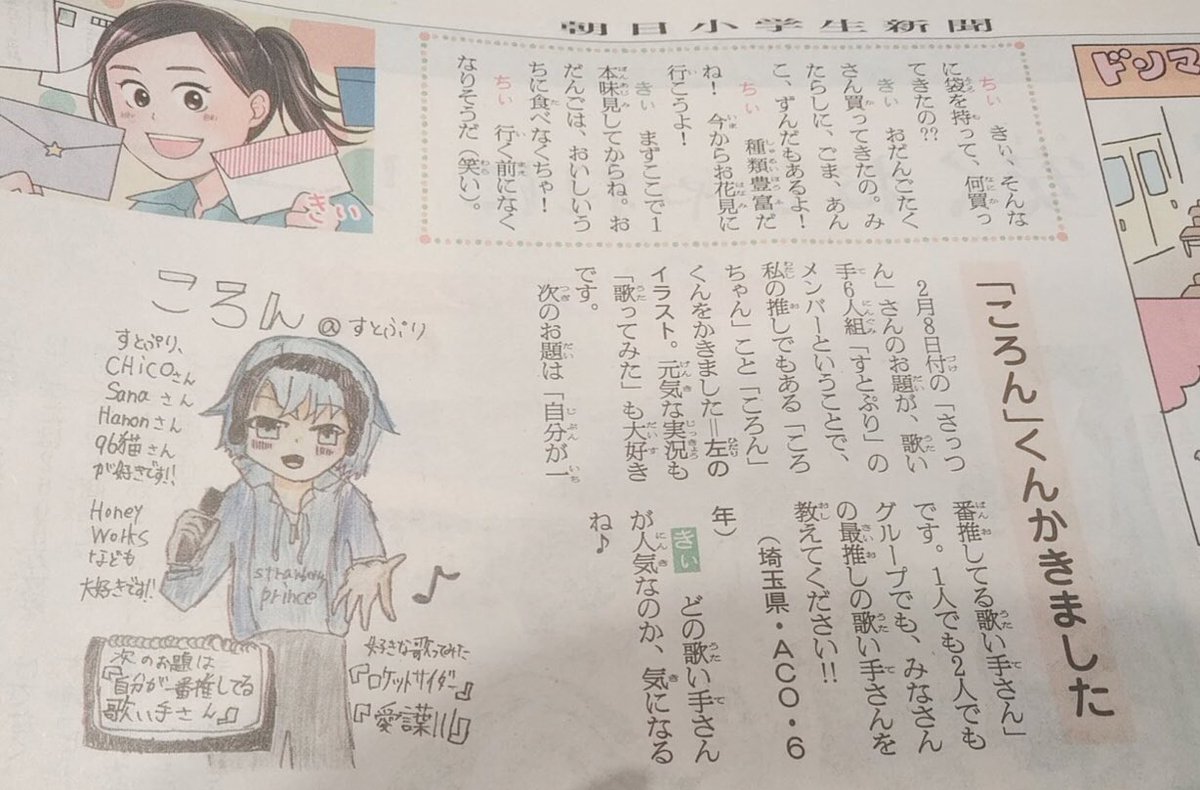 朝日小学生新聞
ドンマ
ちぃ　きぃ、そんな
に袋を持って、何買っ
てきたの??
きぃ　おだんごたく
さん買ってきたの。み
たらしに、ごま、あん
こ、ずんだもあるよ！
ちぃ　種類豊富だ
ね！　今からお花見に
行こうよ！
きぃ　まずここで１
本味見してからね。お
だんごは、おいしいう
ちに食べなくちゃ！
ちぃ　行く前になく
なりそうだ（笑い）。
きぃ
「ころん」くんかきました
２月８日付の「さっつ
ん」さんのお題が、歌い
手６人組「すとぷり」の
メンバーということで、
私の推しでもある「ころ
ちゃん」こと「ころん」
くんをかきました＝左の
イラスト。元気な実況も
「歌ってみた」も大好き
です。
次のお題は「自分が一
番推してる歌い手さん」
です。１人でも２人でも
グループでも、みなさん
の最推しの歌い手さんを
教えてください!!
（埼玉県・ＡＣＯ・６
年）
きぃ　どの歌い手さん
が人気なのか、気になる
ね♪
ころん@すとぷり
すとぷり、
CHiCOさん
Sanaさん
Hanonさん
96猫さん
が好きです!!
Honey
Works
なども
大好きです!!
strawberry
prince
好きな歌ってみた
『ロケットサイダー』
『愛言葉III』
次のお題は
『自分が一番推してる
歌い手さん』